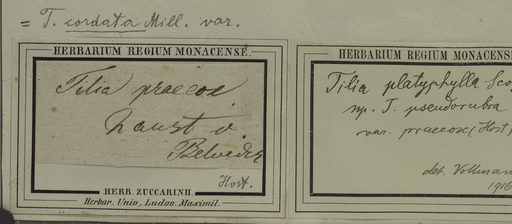 = T. cordata Mill. var.
HERBARIUM REGIUM MONACENSE.
Tilia praecox
Belveder
Host.
HERB. ZUCCARINII.
Herbar. Univ. Ludov. Maximil.
HERBARIUM REGIUM MONACENSE
Tilia platyphylla Scop
sp. T. pseudorubra
var. praecox (Host)
det. Vollmann
1916